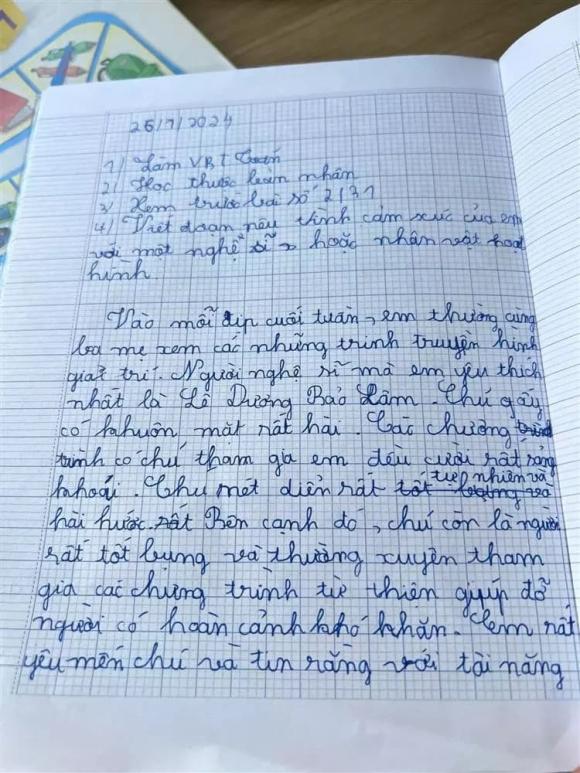 26/9/2024
1) Làm VBT Toán
2) Học thuộc bản nhân
3) Xem trước bài số 2131
4) Viết đoạn nêu tình cảm xúc của em
với một nghệ sĩ hoặc nhân vật hoạt
hình.
Vào mỗi dịp cuối tuần, em thường cùng
ba mẹ xem các những trình truyện hình
giải trí. Người nghệ sĩ mà em yêu thích
nhất là Lê Dương Bảo Lâm. Chú gấy
có khuôn mặt rất hài. Các chương
trình có chú tham gia em đều cười rất sảng
khoái. Chú một diễn rất tự nhiên và
hài hước. Bên cạnh đó, chú còn là người
rất tốt bụng và thường xuyên tham
gia các chưng trình từ thiện giyúp đỡ
người có hoàn cảnh khó khăn. Em rất
yêu mến chú và tin rằng với tài năng